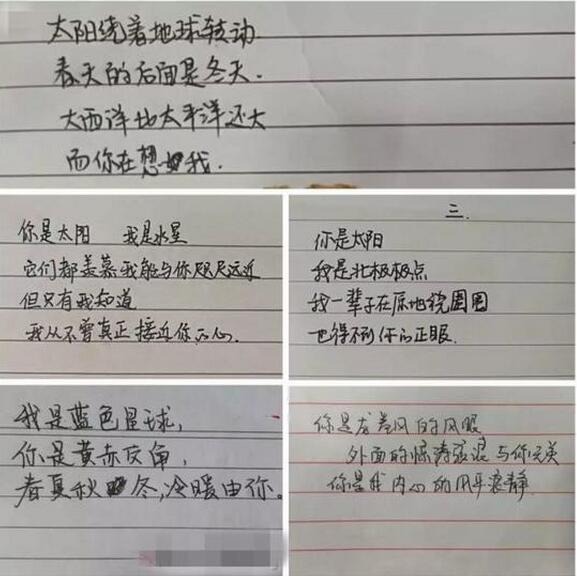 太阳绕着地球转动
春天的后面是冬天.
大西洋比太平洋还大
而你在想我.
你是太阳 我是水星
它们都羡慕我能与你咫尺远近
但只有我知道
我从不曾真正接近你的心.
三.
你是太阳
我是北极极点
我一辈子在原地绕圈圈
也得不到你的正眼.
我是蓝色星球,
你是黄赤交角,
春夏秋冬,冷暖由你。
你是龙卷风的风眼
外面的惊涛骇浪与你无关
你是我内心的风平浪静